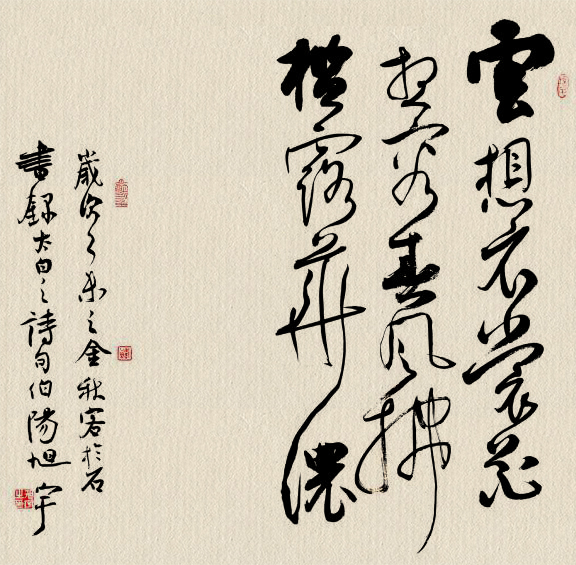 雲想衣裳花
想容春風拂
檻露華濃
歲次乙未之金秋客於石
書録太白之詩句伯陽旭宇